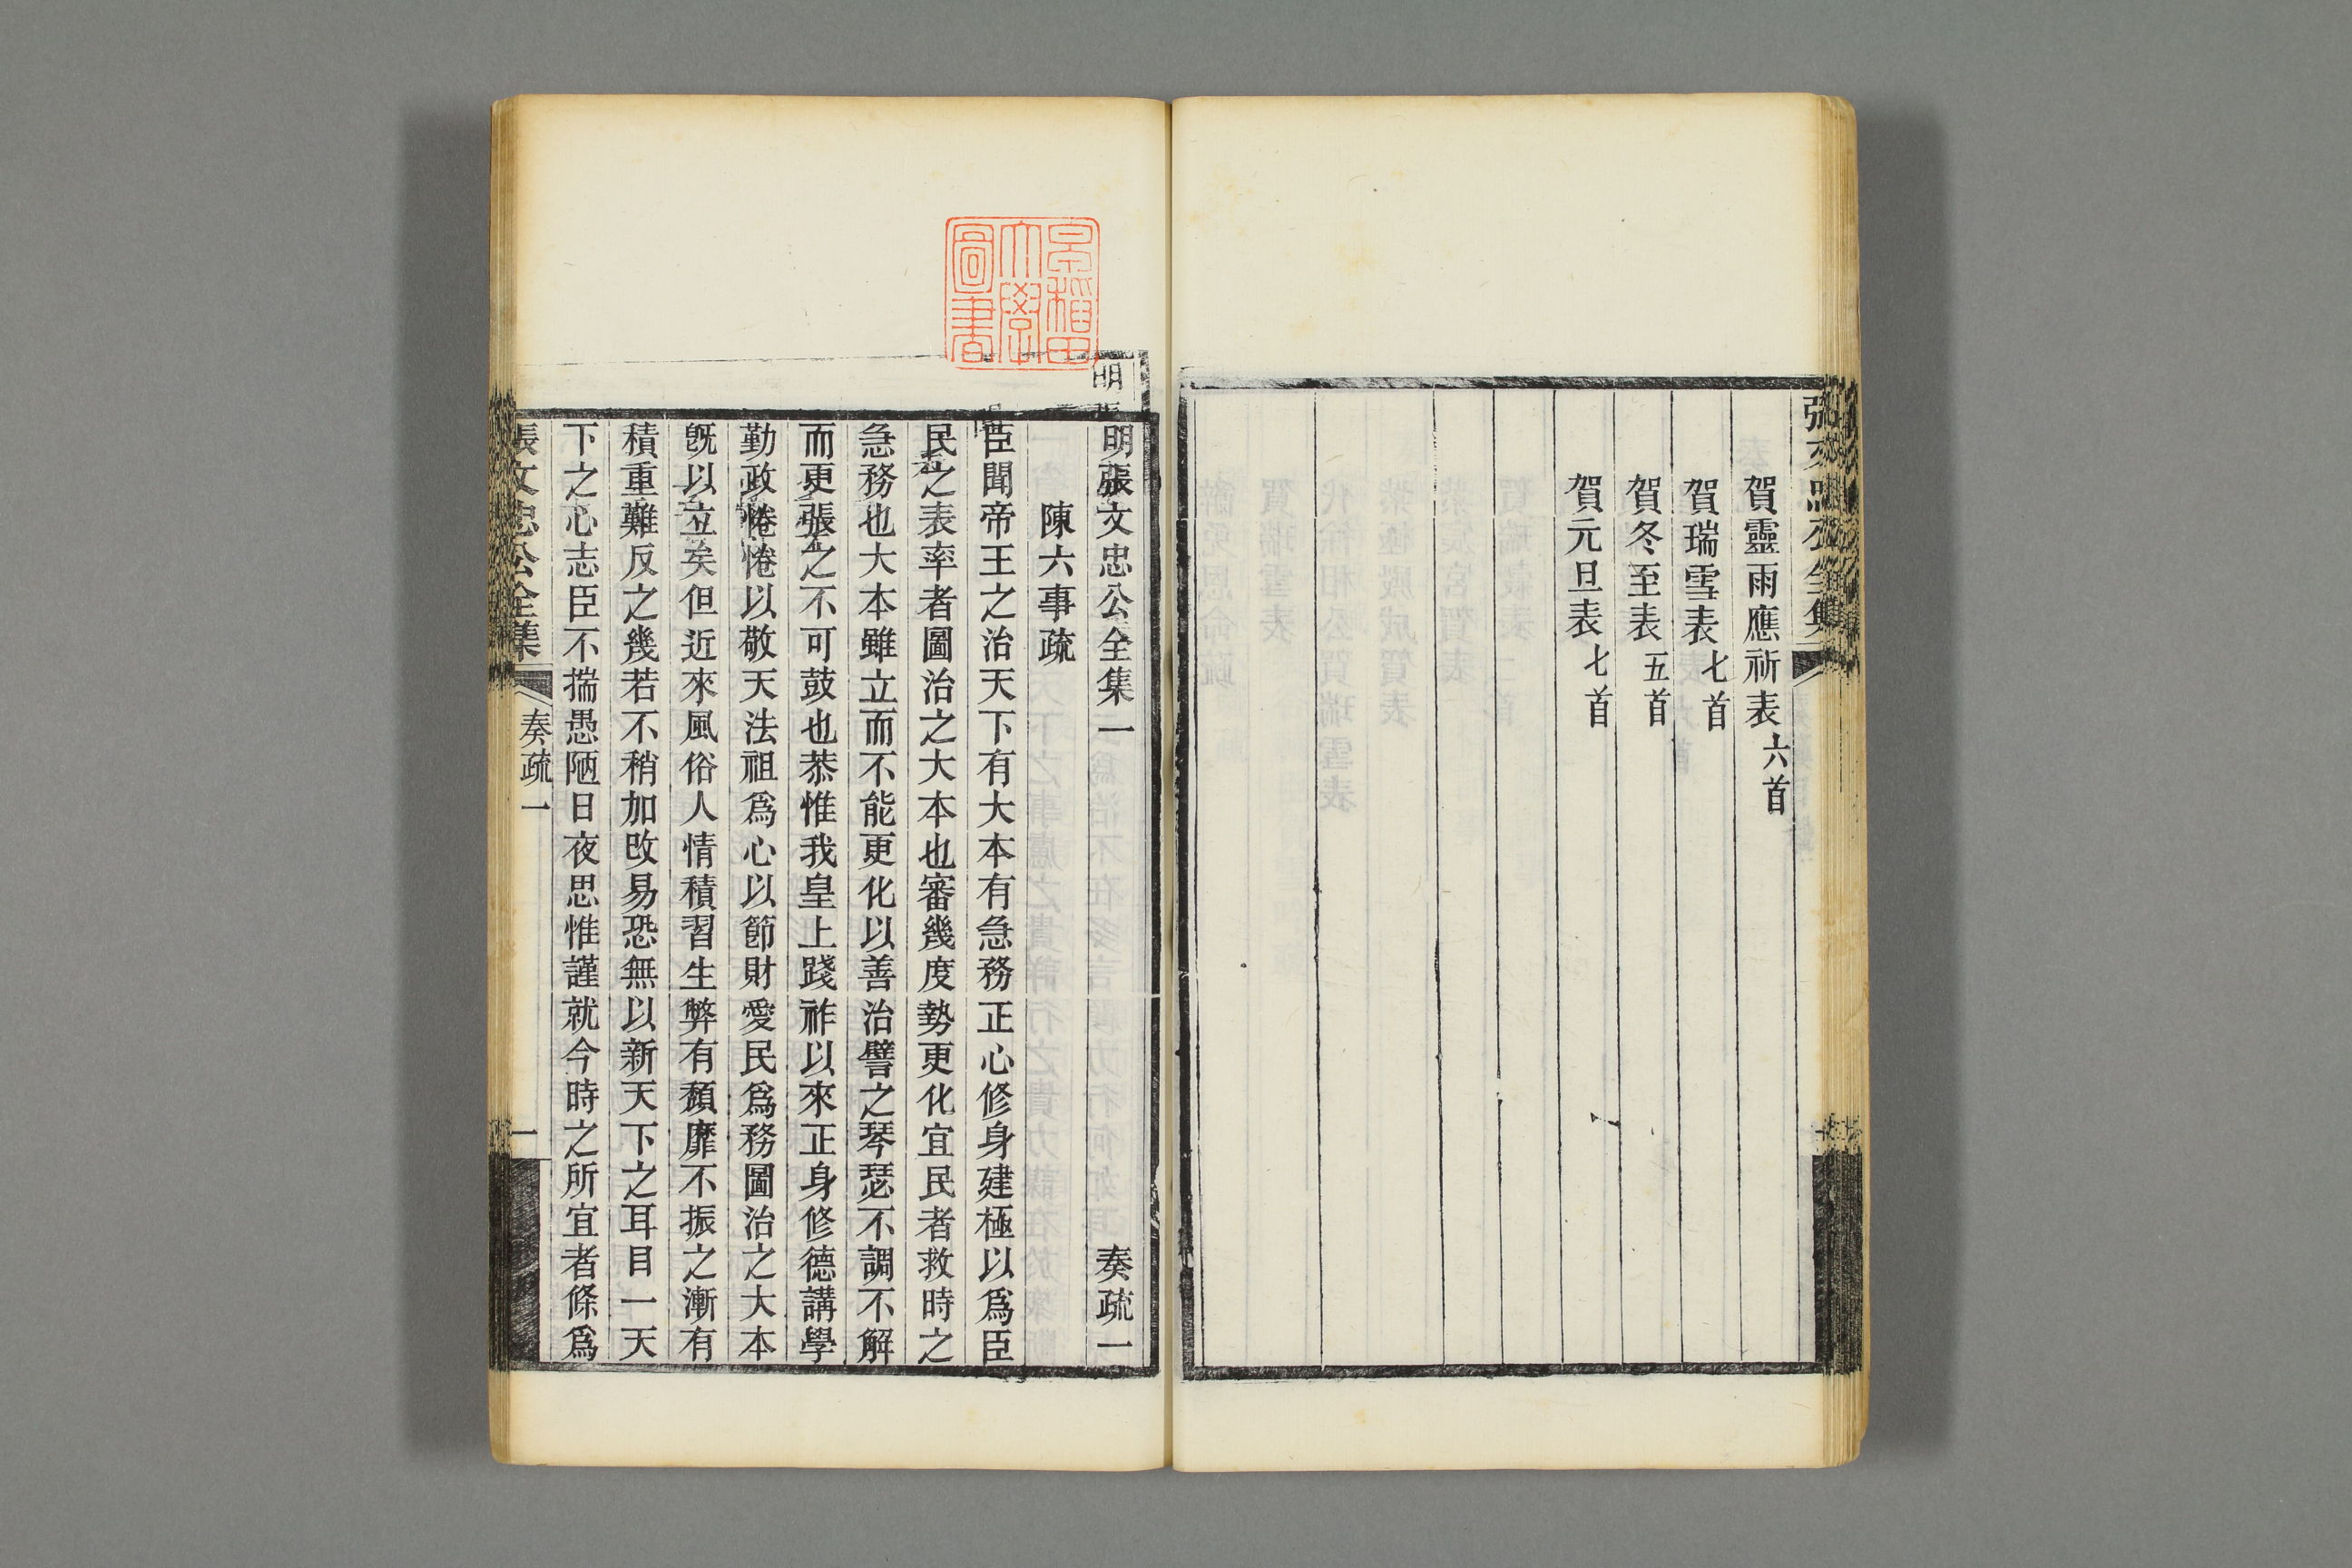 張文忠公全集
賀靈雨應祈表六首
賀瑞雪表七首
賀冬至表五首
賀元旦表七首
早稻田
大學
圖書
明張文忠公全集一 奏疏一
陳六事疏
臣聞帝王之治天下有大本有急務正心修身建極以爲臣
民之表率者圖治之大本也審幾度勢更化宜民者救時之
急務也大本雖立而不能更化以善治譬之琴瑟不調不解
而更張之不可鼓也恭惟我皇上踐祚以來正身修德講學
勤政惓惓以敬天法祖爲心以節財愛民爲務圖治之大本
旣以立矣但近來風俗人情積習生弊有頹靡不振之漸有
積重難反之幾若不稍加改易恐無以新天下之耳目一天
下之心志臣不揣愚陋日夜思惟謹就今時之所宜者條爲
張文忠公全集 奏疏一 一